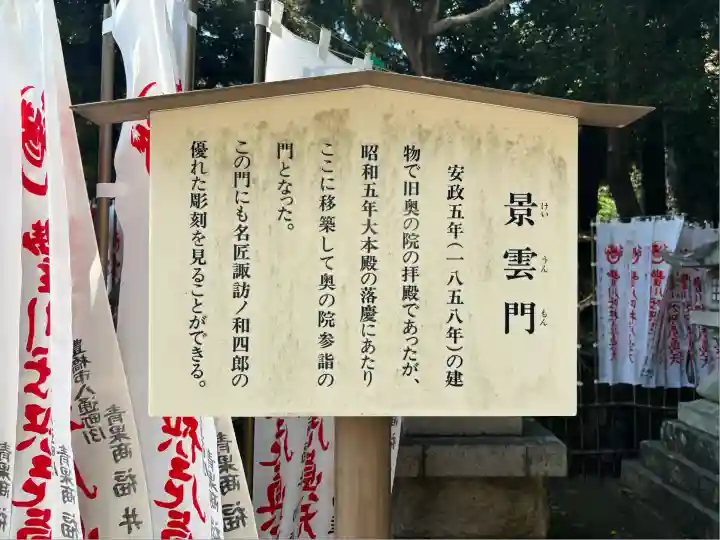 景雲門
けい うん もん
安政五年(一八五八年)の建
物で旧奥の院の拝殿であったが、
昭和五年大本殿の落慶にあたり
ここに移築して奥の院参詣の
門となった。
この門にも名匠諏訪ノ和四郎の
優れた彫刻を見ることができる。
豊橋市八通町131
青果商 福井
青果商 福